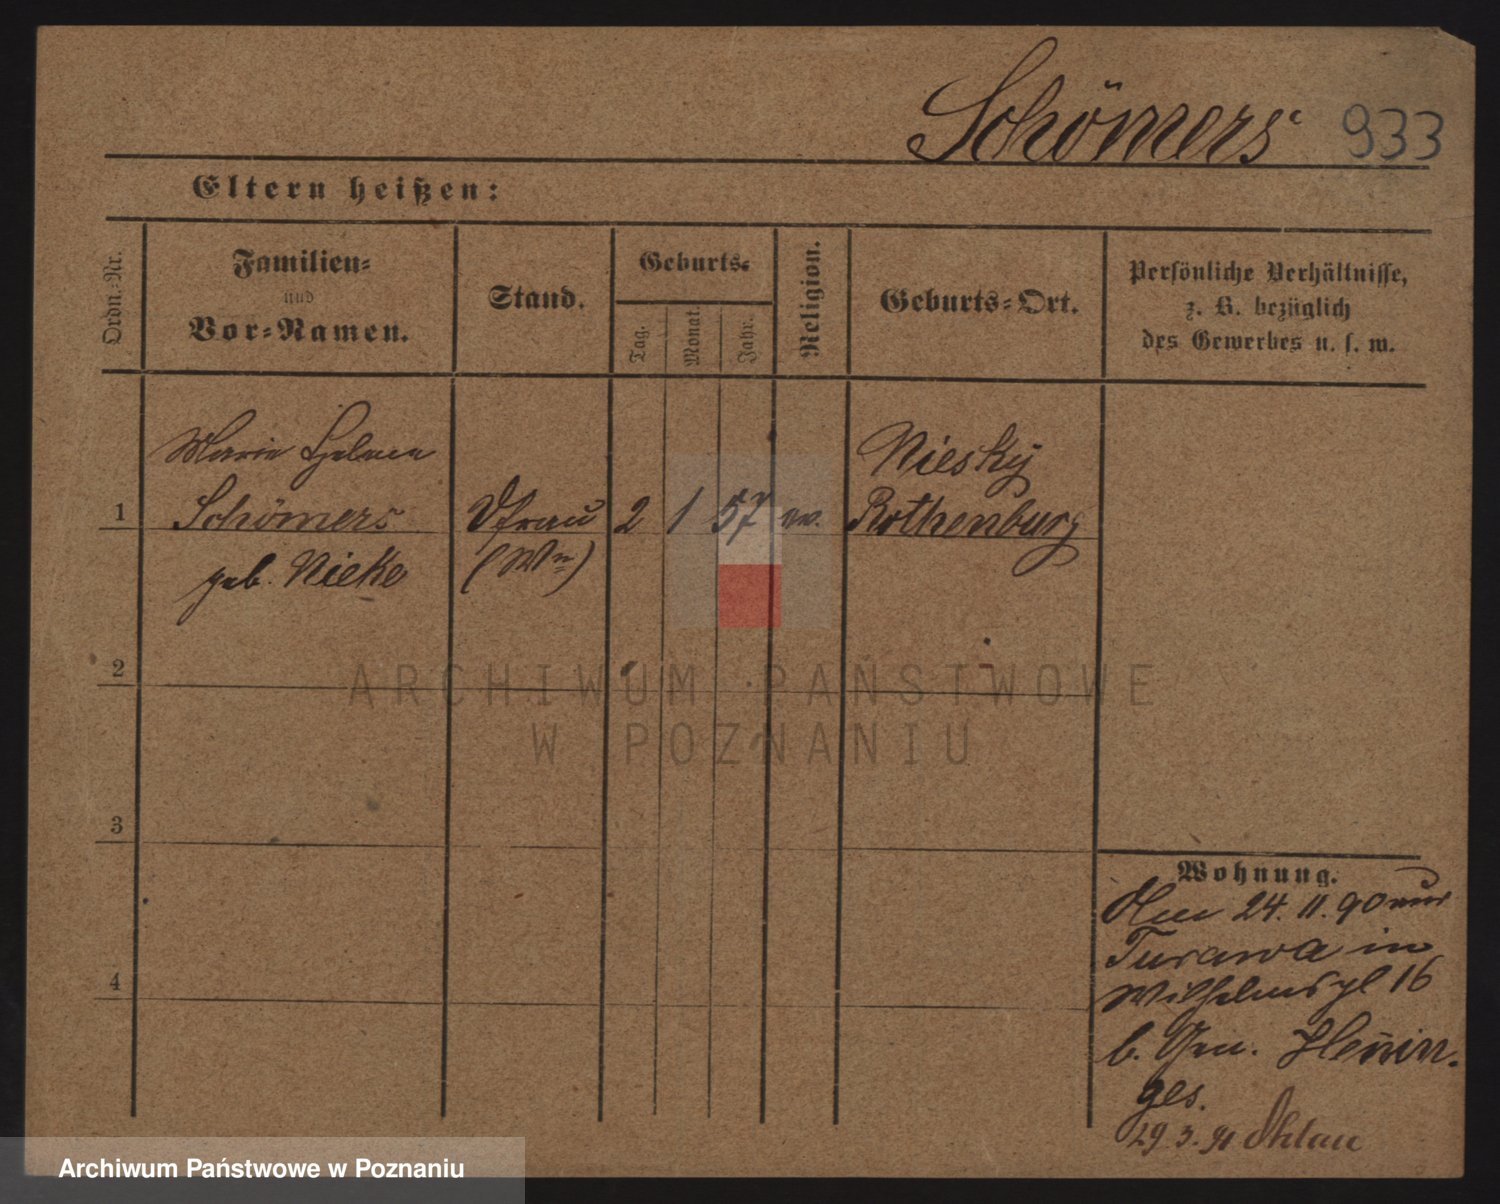 Schömers 933
Eltern heißen:
Ordn.-Nr.
Familien-
und
Vor-Namen.
Stand.
Geburts-
Tag.
Monat.
Jahr.
Religion.
Geburts-Ort.
Persönliche Verhältnisse,
z. B. bezüglich
des Gewerbes u. s. w.
Marie Helene
Niesky
1 Schömers frau 2 1 57 ev. Rothenburg
geb. Nieke (Wn)
2
ARCHIWUM PAŃSTWOWE
W POZNANIU
3
Wohnung.
24. 11. 90 aus
Turawa in
4 Wilhelmspl 16
b. Gen. Hennin.
ges.
29. 3. 91 Ohlau
Archiwum Państwowe w Poznaniu